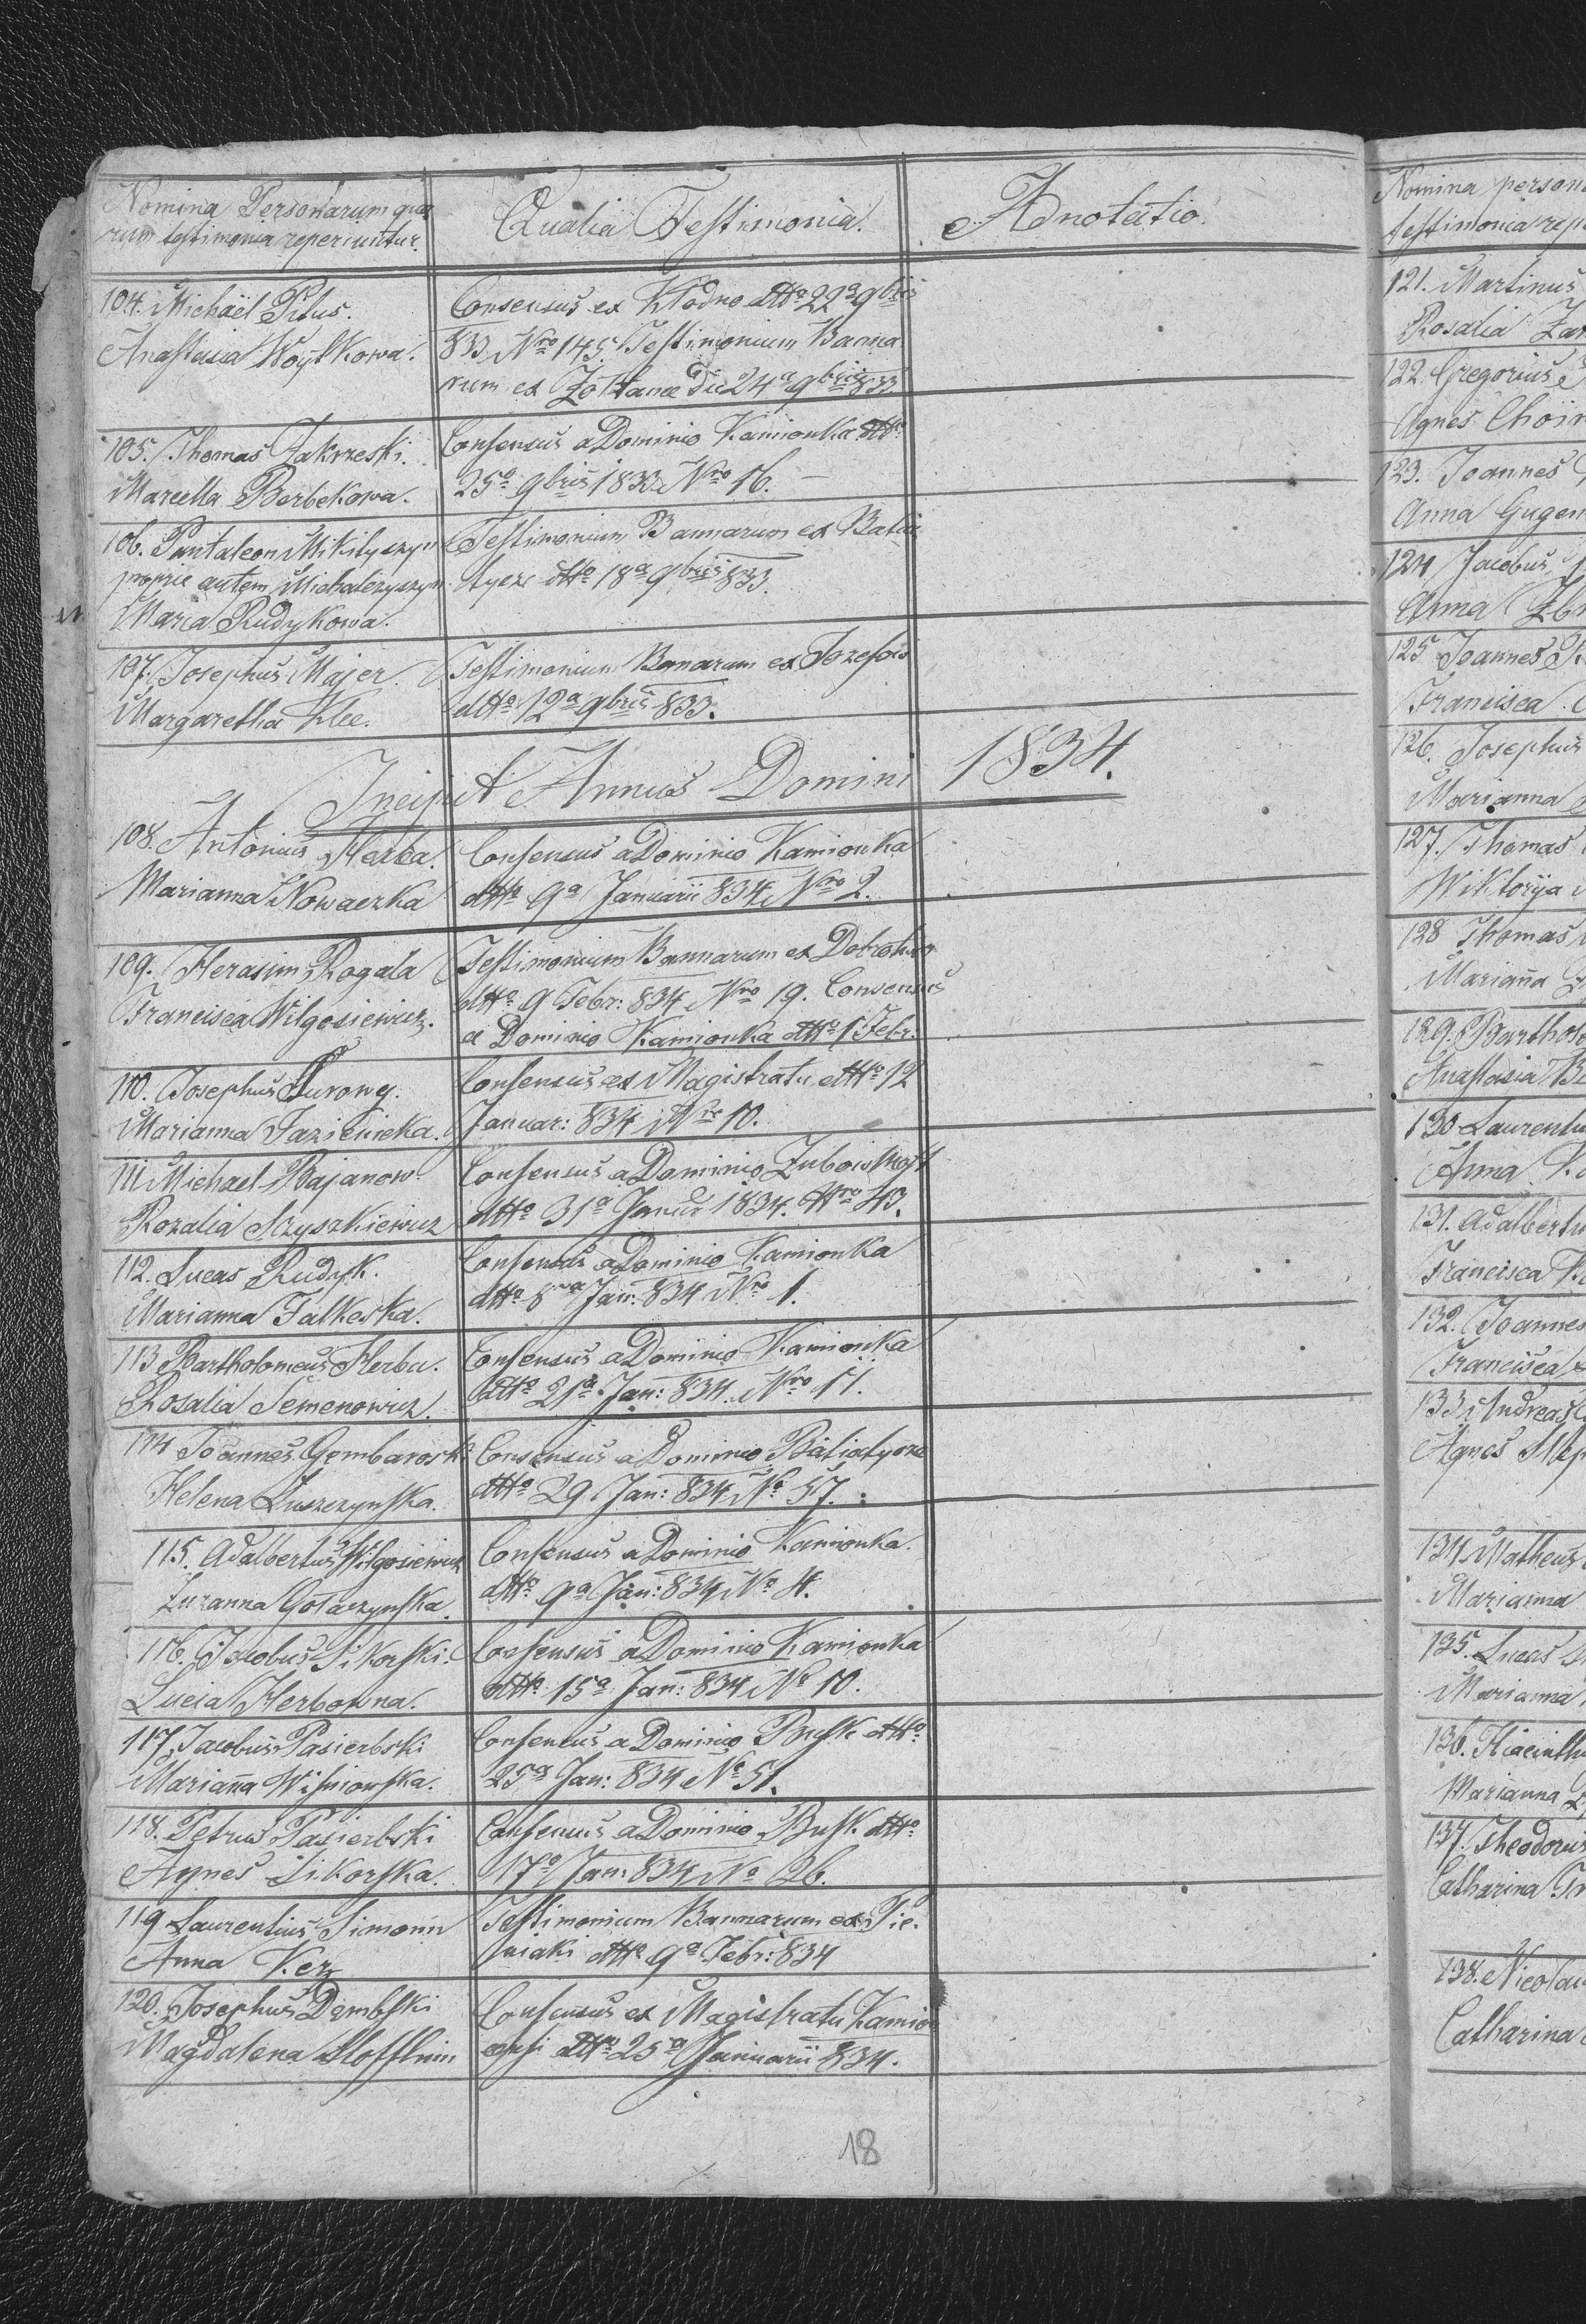 Nomina Personarum quo
rum testimonia reperiuntur.
Qualia Testimonia.
Anotatio.
104. Michaël Pitus.
Anastasia Woytkowa.
Consensus ex Kłodno dtto 22a 9bris
833 Nro 145. Testimonium Banna
rum ex Żołtance die 24a 9bris 833
105. Thomas Zakrzeski.
Marcella Berbekowa.
Consensus a Dominio Kamionka dtto
25a 9bris 1833 Nro 16.
106. Pantaleon Mikityczyn
proprie autem Michalczyszyn
Maria Rudykowa.
Testimonium Bannarum ex Batia
tycze dtto 18a 9bris 833.
107. Josephus Majer.
Margaretha Klee.
Testimonium Banarum ex Jozefow
dtto 12a 9bris 833.
Incipit Annus Domini 1834.
108. Antonius Herba.
Marianna Nowaczka
Consensus a Dominio Kamionka
dtto 9a Januarii 834 Nro 2.
109. Herasim Rogala
Francisca Wilgosiewicz.
Testimonium Bannarum ex Dobrotwor
dtto 9 Febr: 834 Nro 19. Consensus
a Dominio Kamionka dtto 1 Febr.
110. Josephus Surowy.
Marianna Jazienicka.
Consensus ex Magistratu dtto 12
Januar: 834 Nro 10.
111 Michael Bajanow
Rozalia Szyszkiewicz
Consensus a Dominio Zubowmost
dtto 31a Januar 1834. Nro 43.
112. Lucas Rudyk.
Marianna Falkeska.
Consensus a Dominio Kamionka
dtto 8va Jan: 834 Nro 1.
113 Bartholomeus Herba.
Rosalia Semenowicz.
Consensus a Dominio Kamionka
dtto 21a Jan: 834. Nro 11.
114 Joannes Gembarosk
Helena Łuszczynska.
Consensus a Dominio Batiatycze
dtto 29 Jan: 834 No 57.
115. Adalbertus Wilgosiewicz
Zuzanna Gołaczynska.
Consensus a Dominio Kamionka.
dtto 9a Jan: 834 No 4.
116. Jacobus Sikorski.
Lucia Herbowna.
Consensus a Dominio Kamionka
dtto 15a Jan: 834 No 10.
117 Jacobus Pasierbski
Marianna Wisniowska.
Consensus a Dominio Busk dtto
25a Jan: 834 No 51.
118. Petrus Pasierbski
Agnes Sikorska.
Consensus a Dominio Busk dtto
17a Jan: 834 No 26.
119 Laurentius Simonn
Anna Kerz
Testimonium Bannarum ex Pie-
niaki dtto 9a Febr: 834
120. Josephus Dembski
Magdalena Stofflnin
Consensus ex Magistratu Kamion
censi dtto 25a Januarii 834.
18
Nomina person
testimonia rep
121. Martinus
Rosalia
122. Gregorius
Agnes
123. Joannes
Anna
124 Jacobus
Anna
125 Joannes
Francisca
126. Josephus
Marianna
127. Thomas
Wiktorya
128 Thomas
Marianna
129. Bartholo
Anastasia
130 Laurentiu
Anna
131. Adalbertu
Francisca
132. Joannes
Francisca
133 Andreas
Agnes
134 Matheus
Marianna
135. Lucas
Marianna
136. Hiacinthu
Marianna
137. Theodorus
Catharina
138. Nicolau
Catharina